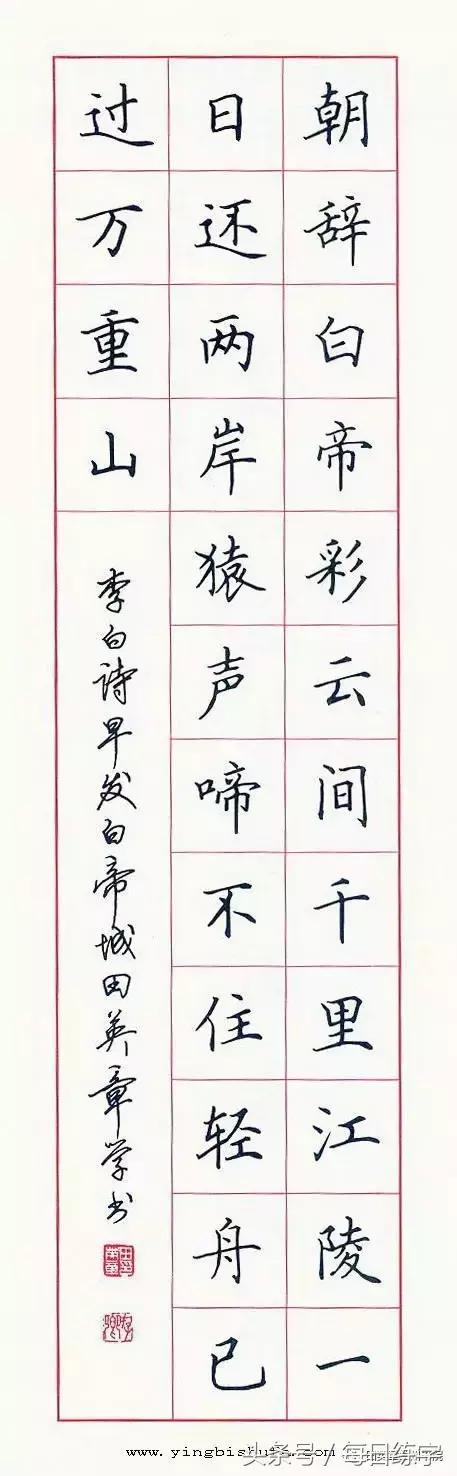 朝辞白帝彩云间千里江陵一
日还两岸猿声啼不住轻舟已
过万重山
李白诗早发白帝城田英章学书
头条号／每日练字